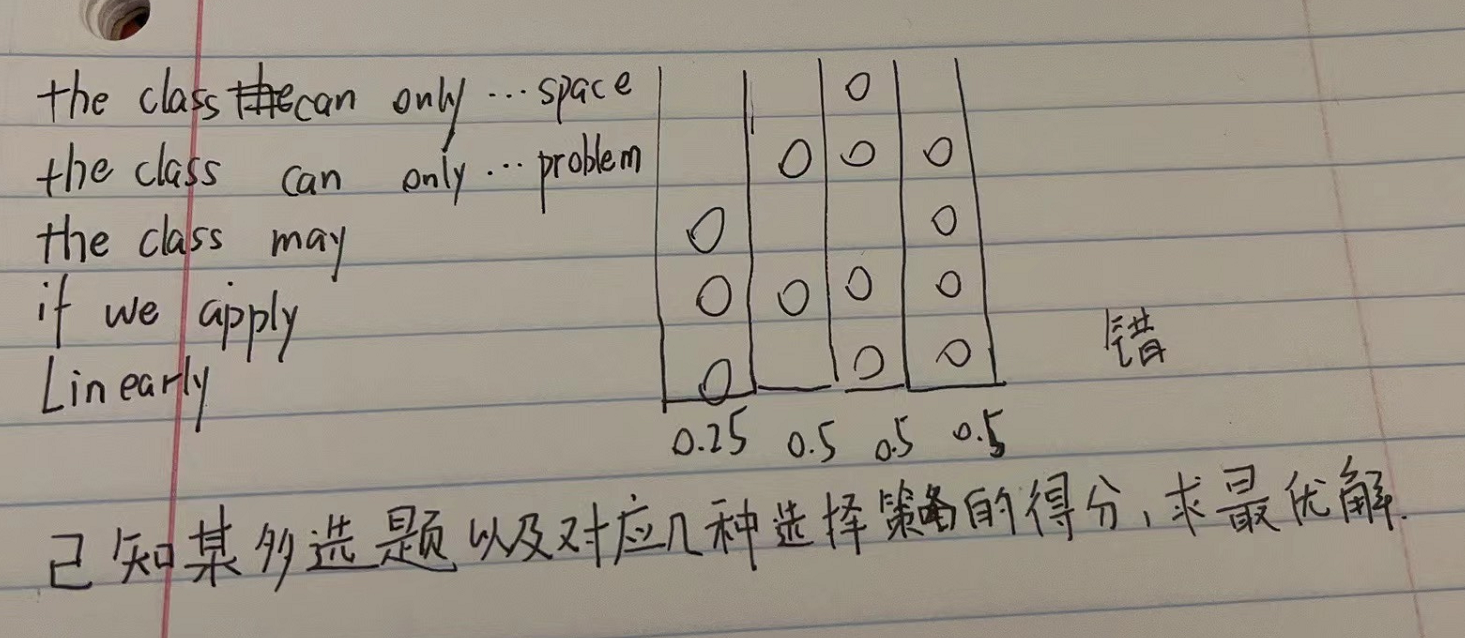 the class can only ... space
the class can only ... problem
the class may
if we apply
Linearly
错
0.25 0.5 0.5 0.5
已知某多选题以及对应几种选择策略的得分,求最优解.